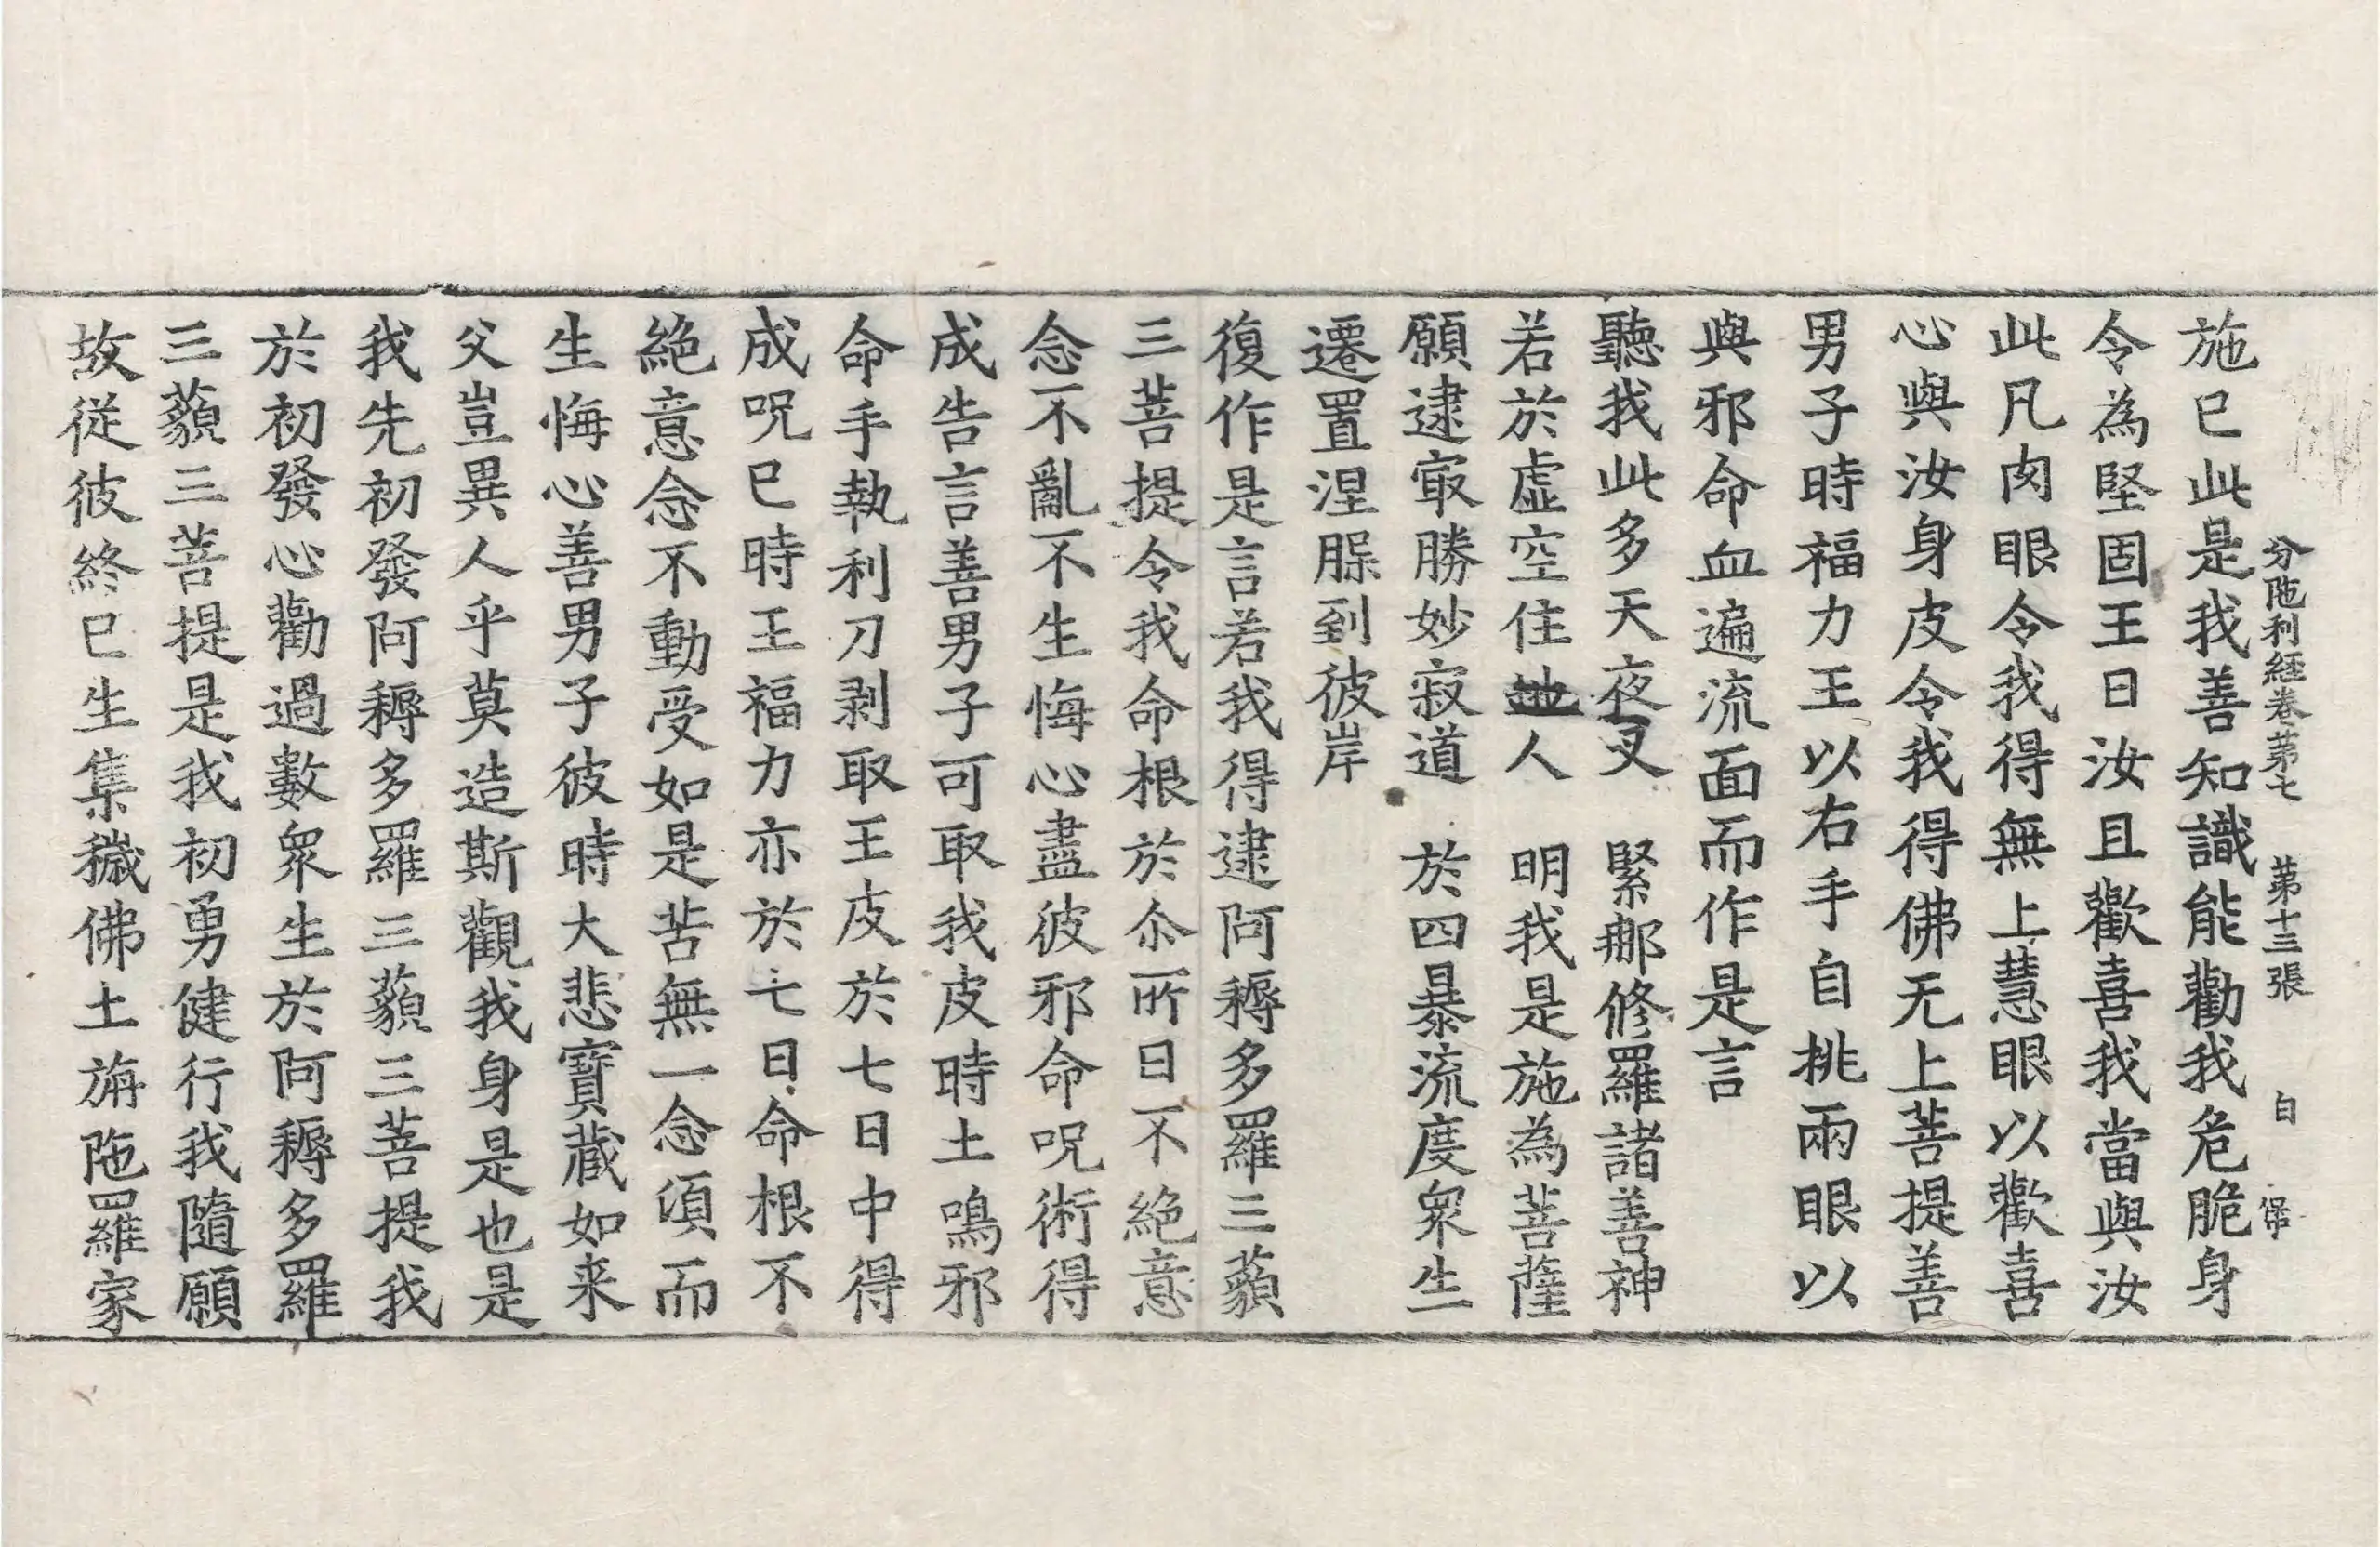 分陁利經卷第七　第十三張　白
施已此是我善知識能勸我危脆身
令為堅固王曰汝且歡喜我當與汝
此凡肉眼令我得無上慧眼以歡喜
心與汝身皮令我得佛无上菩提善
男子時福力王以右手自挑兩眼以
與邪命血遍流面而作是言
聽我此多天夜叉　緊那修羅諸善神
若於虛空住地人　明我是施為菩薩
願逮㝡勝妙寂道　於四暴流度眾生
遷置涅䐑到彼岸
復作是言若我得逮阿耨多羅三藐
三菩提令我命根於尒所日不絕意
念不亂不生悔心盡彼邪命呪術得
成告言善男子可取我皮時土鳴邪
命手執利刀剥取王皮於七日中得
成呪已時王福力亦於七日命根不
絕意念不動受如是苦無一念須而
生悔心善男子彼時大悲寶藏如来
父豈異人乎莫造斯觀我身是也是
我先初發阿耨多羅三藐三菩提我
於初發心勸過數眾生於阿耨多羅
三藐三菩提是我初勇健行我隨願
故從彼終已生集穢佛土旃陁羅家